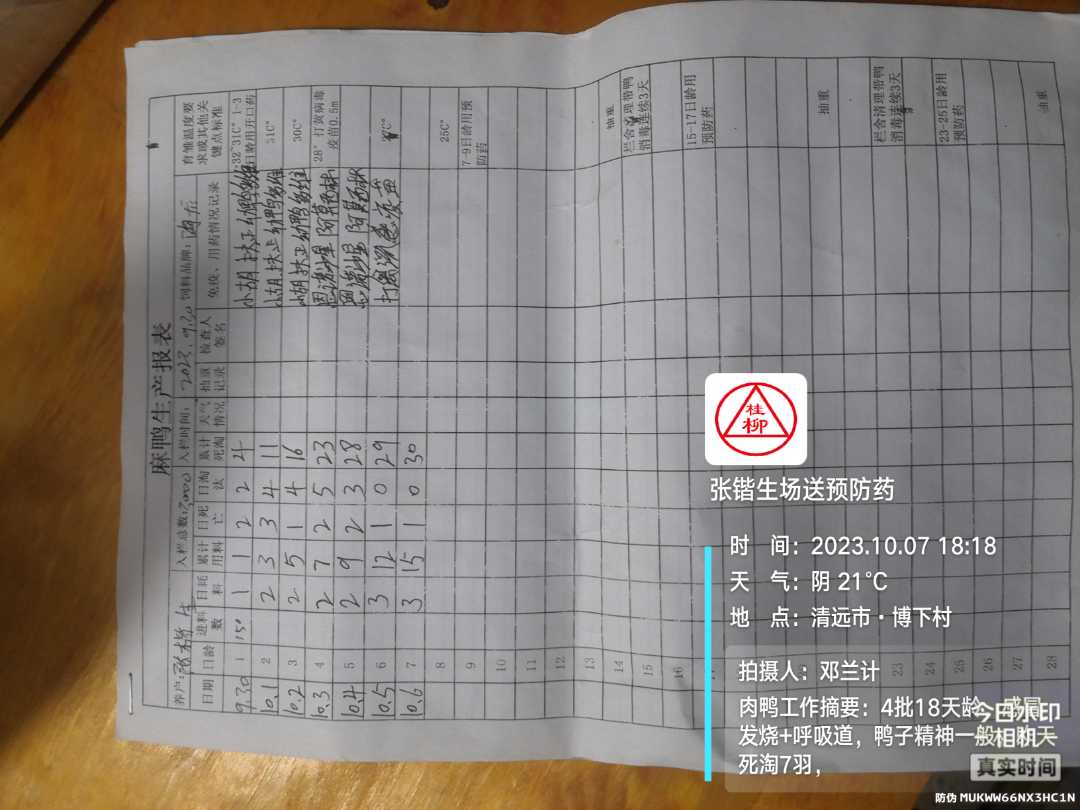 麻鸭生产报表
养户: 张楷生 入栏总数: 7000 入栏时间: 2023.9.30 饲料品牌: 海龙
日期 日龄 进料数 日耗料 累计用料 日死亡 日淘汰 累计死淘 天气情况 抽重记录 检查人签名 免疫、用药情况记录 育雏温度要求或其他关键点标准
9.30 1 150 1 1 2 2 4 小胡 扶正 幼鸭多维 32~31C° 1-3日龄用开口药
10.1 2 2 3 3 4 11 小胡 扶正 幼鸭多维 31C°
10.2 3 2 5 1 4 16 小胡 扶正 幼鸭多维 30C°
10.3 4 2 7 2 5 23 恩诺沙星 阿莫西林 28° 打黄病毒疫苗0.5m
10.4 5 2 9 2 3 28 恩诺沙星 阿莫西林
10.5 6 3 12 1 0 29 打禽流感疫苗
10.6 7 3 15 1 0 30
8 25C°
9 7-9日龄用预防药
10
11
12
13
14 抽重
15 栏舍清理带鸭消毒连续3天
16
15-17日龄用预防药
抽重
23 栏舍清理带鸭消毒连续3天
24
25 23-25日龄用预防药
26
27
28 抽重
桂柳
张锴生场送预防药
时 间: 2023.10.07 18:18
天 气: 阴 21℃
地 点: 清远市·博下村
拍摄人: 邓兰计
肉鸭工作摘要: 4批18天龄，感冒
发烧+呼吸道，鸭子精神一般，昨天
死淘7羽，
今日水印
相机
真实时间
防伪 MUKWW66NX3HC1N